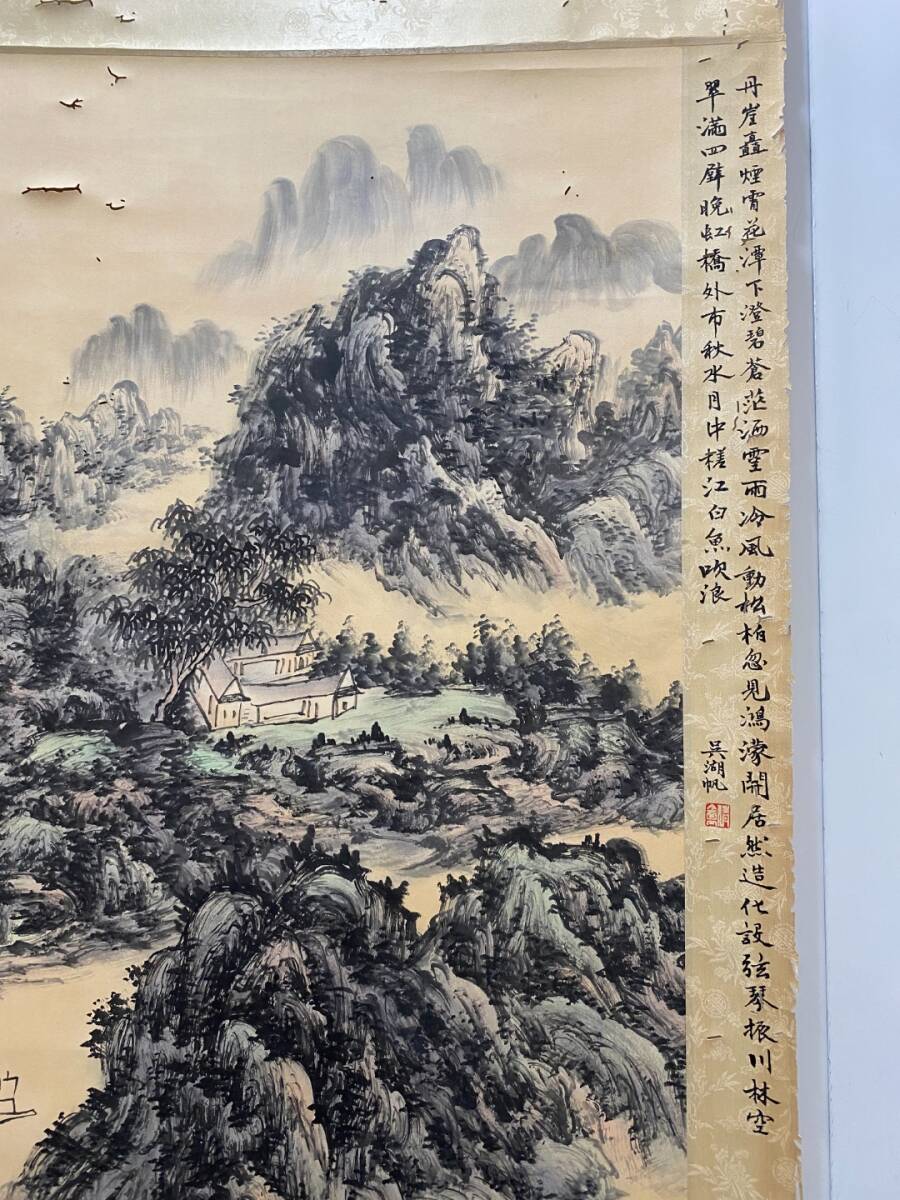 丹崖矗煙霄花潭下澄碧蒼茫洒雪雨冷風動松柏忽見鴻濛開居然造化設弦琴振川林空
翠滿四壁晚虹橋外市秋水月中槎江白魚吹浪
吳湖帆